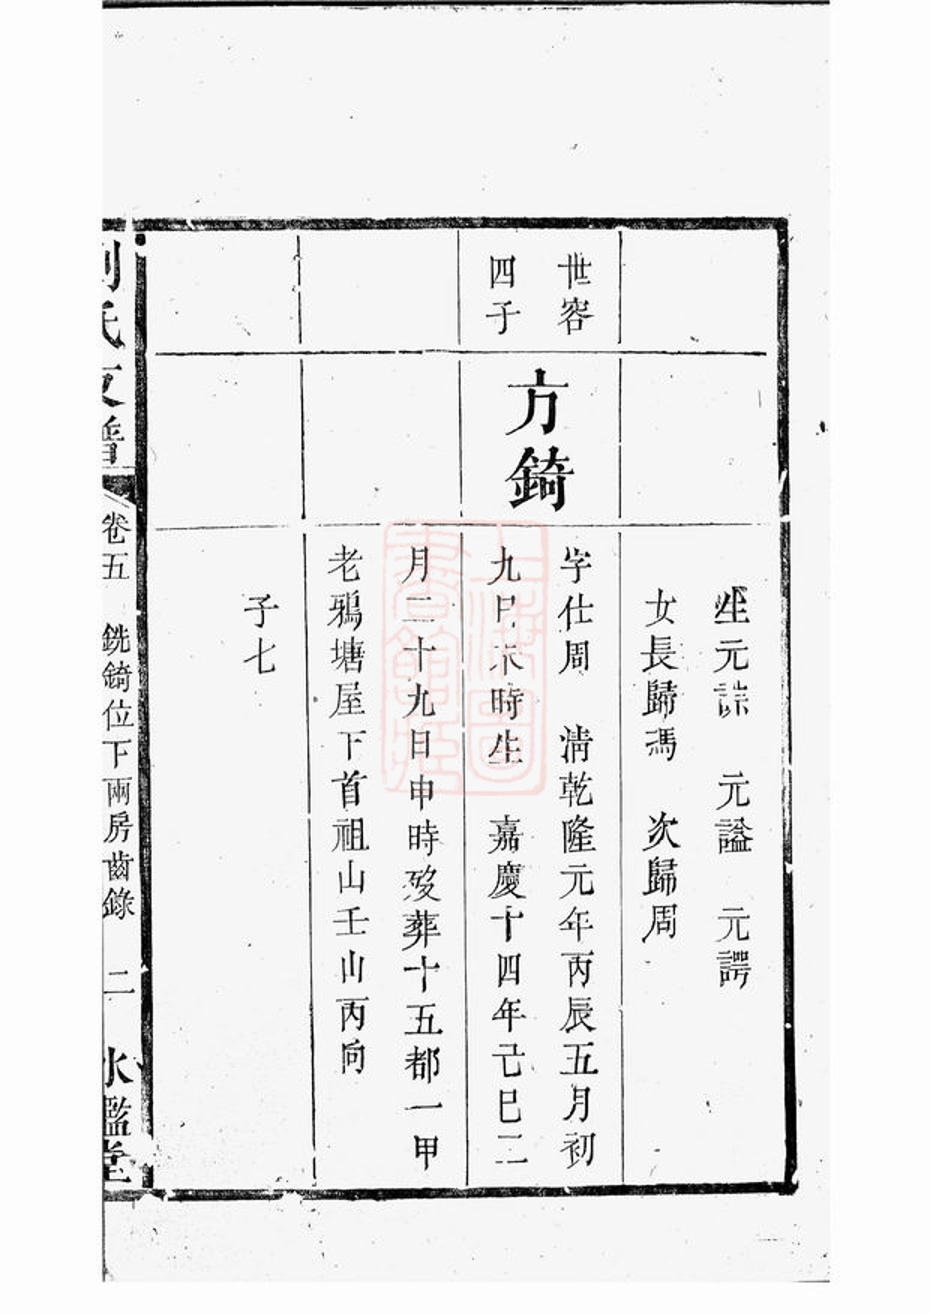 生元誌　元謚　元諤
女長歸馮　次歸周
世容
四子
方錡
字仕周　淸乾隆元年丙辰五月初
九日未時生　嘉慶十四年己巳二
月二十九日申時歿葬十五都一甲
老鴉塘屋下首祖山壬山丙向
子七
劉氏支譜
卷五　銑錡位下兩房齒錄　二　水鑑堂
上海圖書館藏